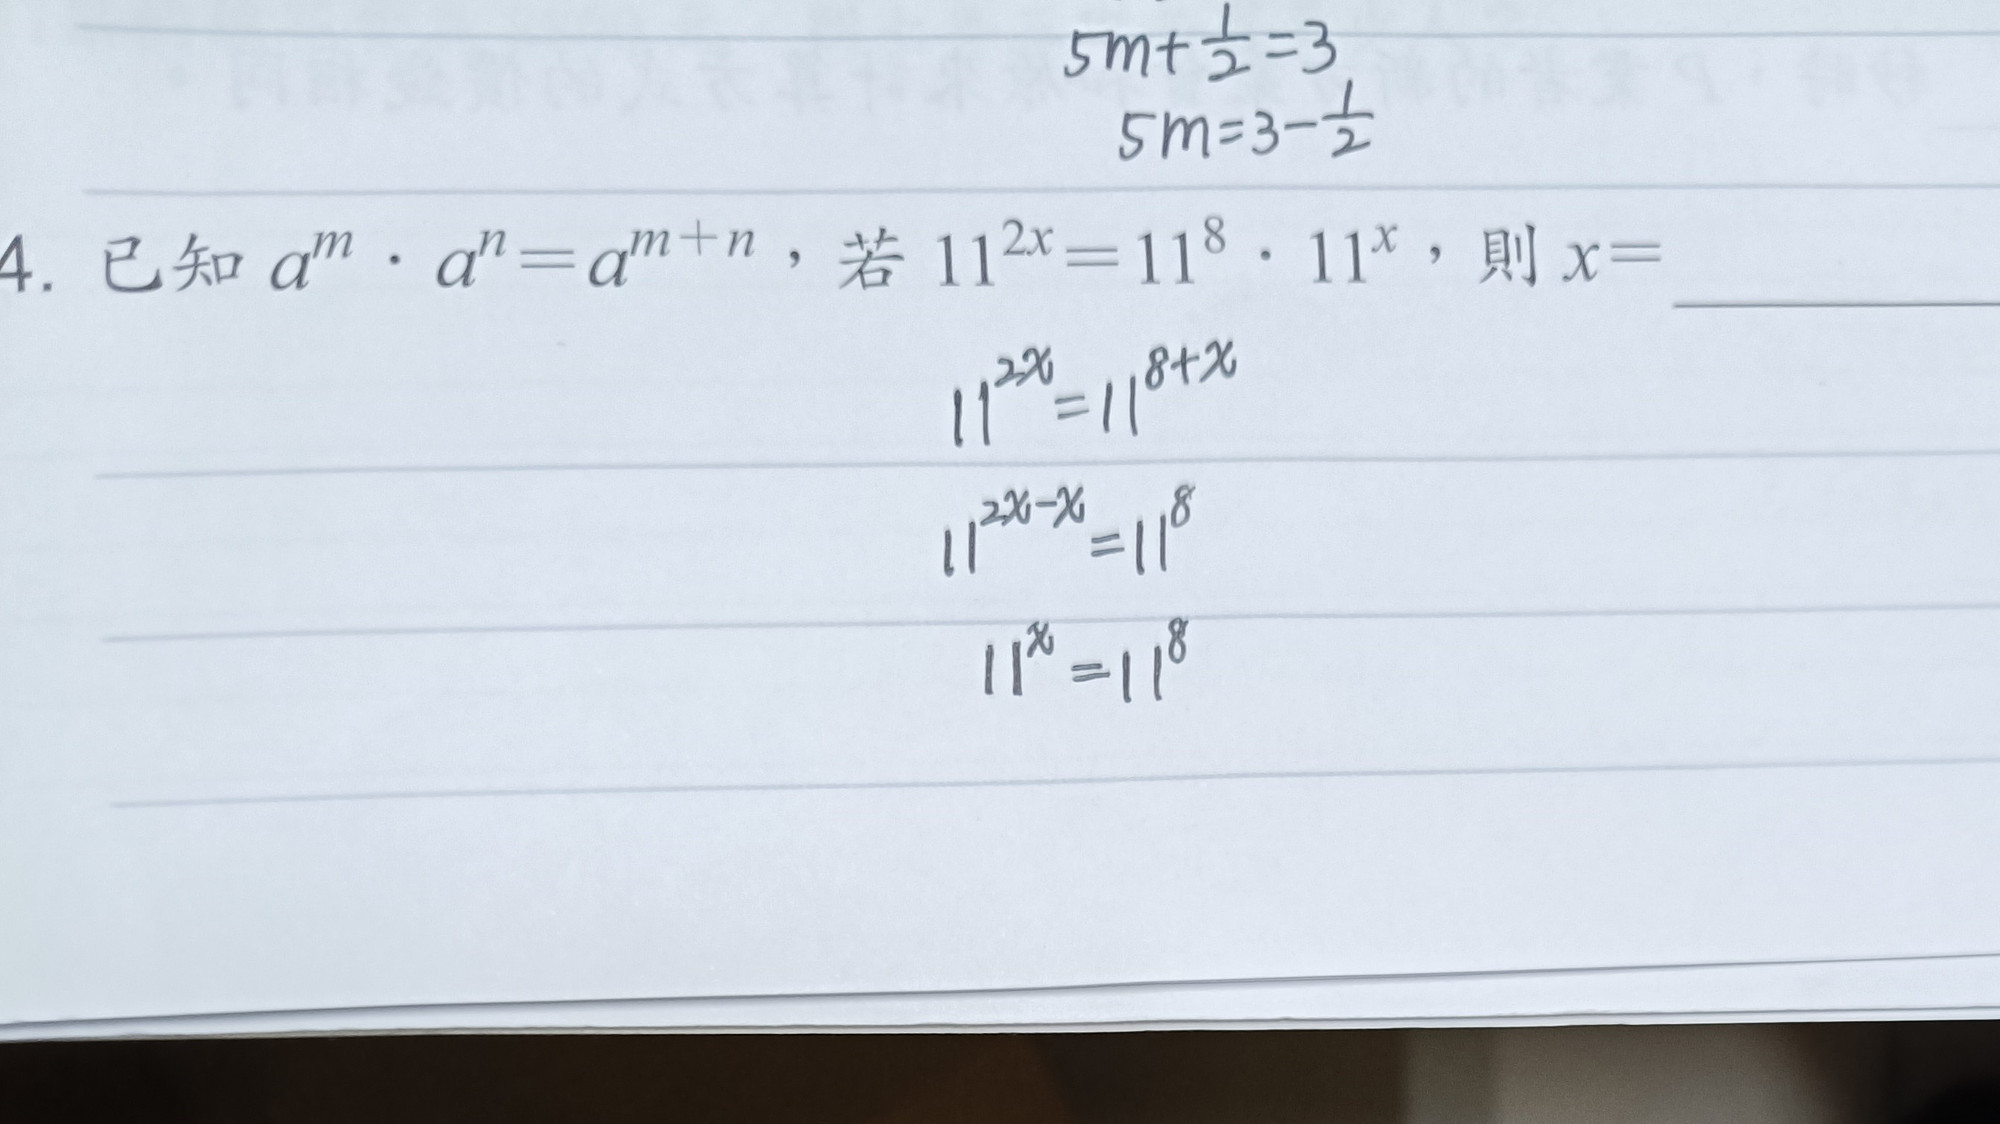 5m+1/2=3
5m=3-1/2
4. 已知 a^m · a^n=a^{m+n}，若 11^{2x}=11^8 · 11^x，則 x=
11^{2x}=11^{8+x}
11^{2x-x}=11^8
11^x=11^8